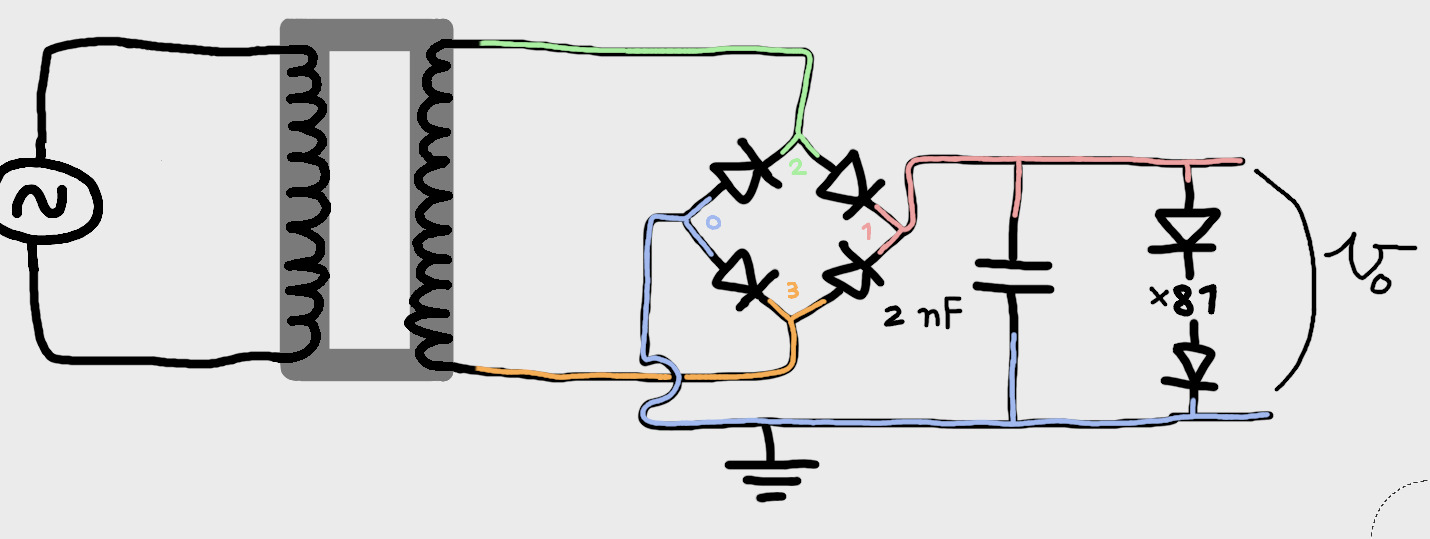 2
0
1
3
2 nF
×81
v₀